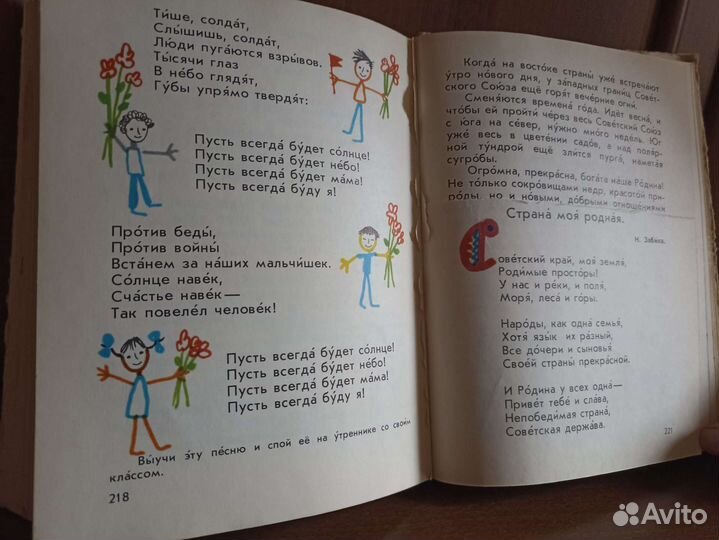 Ти́ше, солда́т,
Слы́шишь, солда́т,
Лю́ди пуга́ются взры́вов.
Ты́сячи глаз
В не́бо глядя́т,
Гу́бы упря́мо твердя́т:
Пусть всегда́ бу́дет со́лнце!
Пусть всегда́ бу́дет не́бо!
Пусть всегда́ бу́дет ма́ма!
Пусть всегда́ бу́ду я!
Про́тив беды́,
Про́тив войны́
Вста́нем за на́ших мальчи́шек.
Со́лнце наве́к,
Сча́стье наве́к —
Так повеле́л челове́к!
Пусть всегда́ бу́дет со́лнце!
Пусть всегда́ бу́дет не́бо!
Пусть всегда́ бу́дет ма́ма!
Пусть всегда́ бу́ду я!
Вы́учи э́ту пе́сню и спой её на у́треннике со свои́м
кла́ссом.
218
Когда́ на восто́ке страны́ уже́ встреча́ют
у́тро но́вого дня, у за́падных грани́ц Сове́т-
ского Сою́за ещё горя́т вече́рние огни́.
Сменя́ются времена́ го́да. Идёт весна́, и
что́бы ей пройти́ че́рез весь Сове́тский Сою́з
с ю́га на се́вер, ну́жно мно́го неде́ль. Юг
уже́ весь в цвете́нии садо́в, а над поля́р-
ной ту́ндрой ещё зли́тся пурга́, намета́я
сугро́бы.
Огро́мна, прекра́сна, бога́та на́ша Ро́дина!
Не то́лько сокро́вищами недр, красото́й при-
ро́ды, но и но́выми, до́брыми отноше́ниями
Страна́ моя́ родна́я.
Н. Забила.
Сове́тский край, моя́ земля́,
Роди́мые просто́ры!
У нас и ре́ки, и поля́,
Моря́, леса́ и го́ры.
Наро́ды, как одна́ семья́,
Хотя́ язы́к их ра́зный,
Все до́чери и сыновья́
Свое́й страны́ прекра́сной.
И Ро́дина у всех одна́—
Приве́т тебе́ и сла́ва,
Непобеди́мая страна́,
Сове́тская держа́ва.
221
Avito